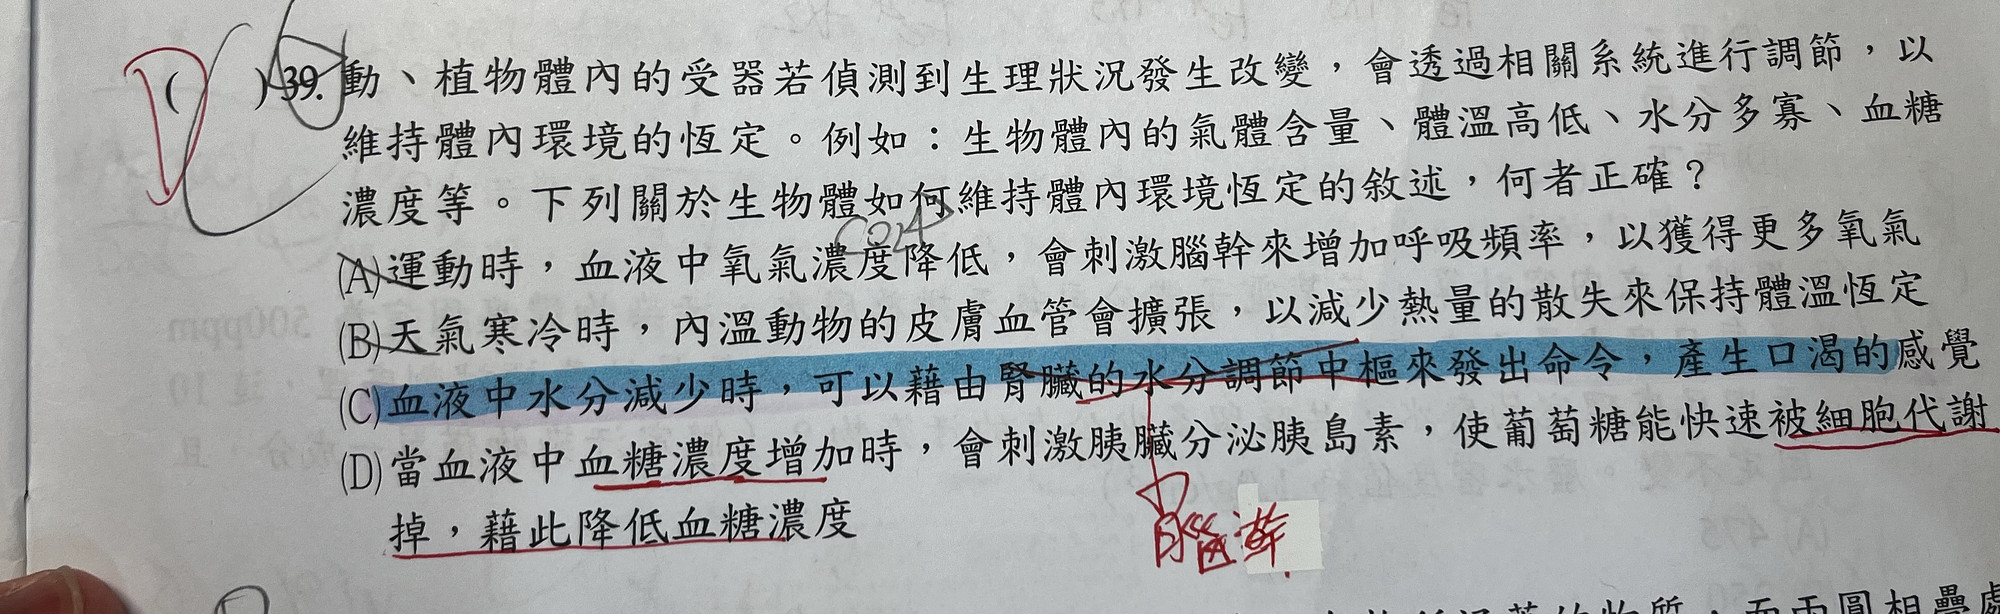 D
( )39.動、植物體內的受器若偵測到生理狀況發生改變，會透過相關系統進行調節，以
維持體內環境的恆定。例如：生物體內的氣體含量、體溫高低、水分多寡、血糖
濃度等。下列關於生物體如何維持體內環境恆定的敘述，何者正確？
CO2↑
(A)運動時，血液中氧氣濃度降低，會刺激腦幹來增加呼吸頻率，以獲得更多氧氣
(B)天氣寒冷時，內溫動物的皮膚血管會擴張，以減少熱量的散失來保持體溫恆定
(C)血液中水分減少時，可以藉由腎臟的水分調節中樞來發出命令，產生口渴的感覺
(D)當血液中血糖濃度增加時，會刺激胰臟分泌胰島素，使葡萄糖能快速被細胞代謝
掉，藉此降低血糖濃度